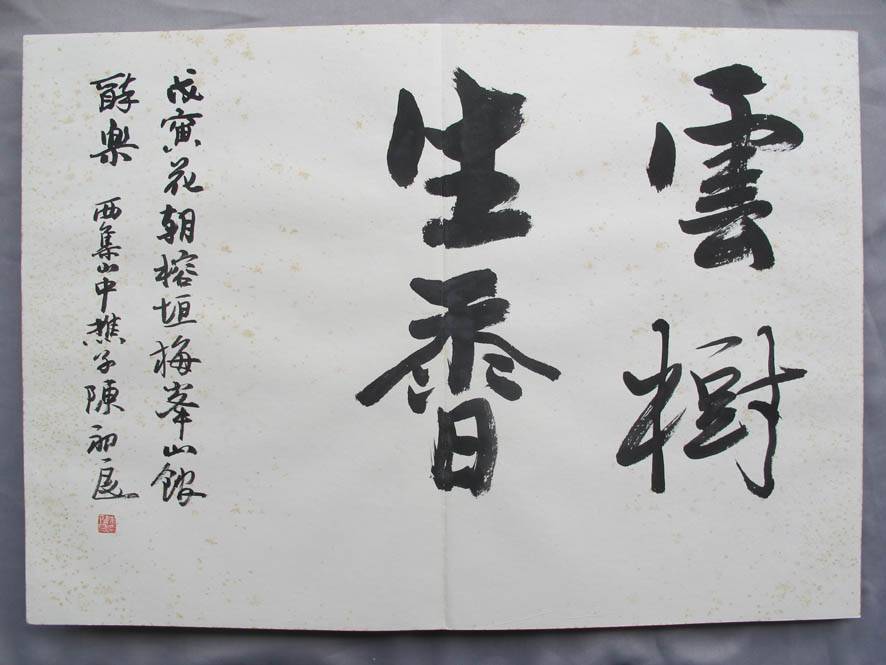 雲樹
生香
戊寅花朝榕垣梅峯山館
樂 西集山中樵子陳初良